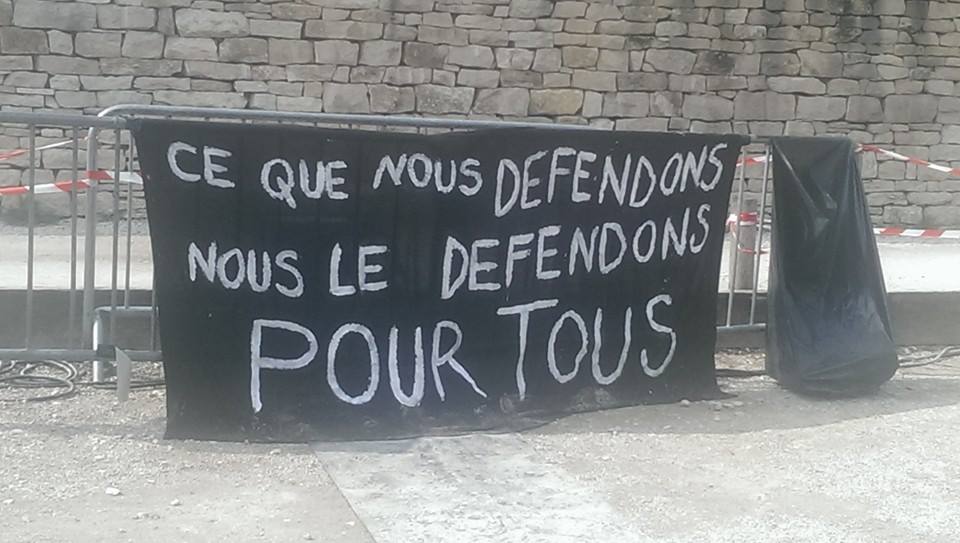 CE QUE NOUS DEFENDONS
NOUS LE DEFENDONS
POUR TOUS